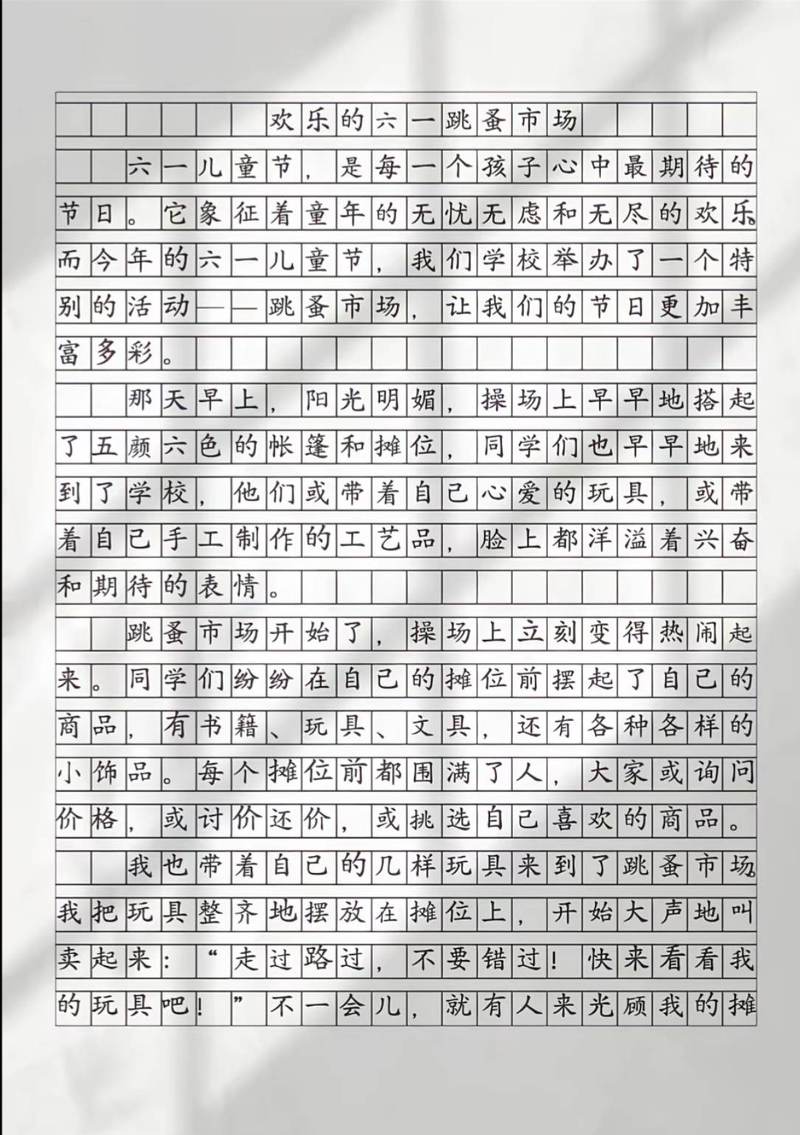 欢乐的六一跳蚤市场
六一儿童节，是每一个孩子心中最期待的
节日。它象征着童年的无忧无虑和无尽的欢乐。
而今年的六一儿童节，我们学校举办了一个特
别的活动——跳蚤市场，让我们的节日更加丰
富多彩。
那天早上，阳光明媚，操场上早早地搭起
了五颜六色的帐篷和摊位，同学们也早早地来
到了学校，他们或带着自己心爱的玩具，或带
着自己手工制作的工艺品，脸上都洋溢着兴奋
和期待的表情。
跳蚤市场开始了，操场上立刻变得热闹起
来。同学们纷纷在自己的摊位前摆起了自己的
商品，有书籍、玩具、文具，还有各种各样的
小饰品。每个摊位前都围满了人，大家或询问
价格，或讨价还价，或挑选自己喜欢的商品。
我也带着自己的几样玩具来到了跳蚤市场。
我把玩具整齐地摆放在摊位上，开始大声地叫
卖起来：“走过路过，不要错过！快来看看我
的玩具吧！”不一会儿，就有人来光顾我的摊